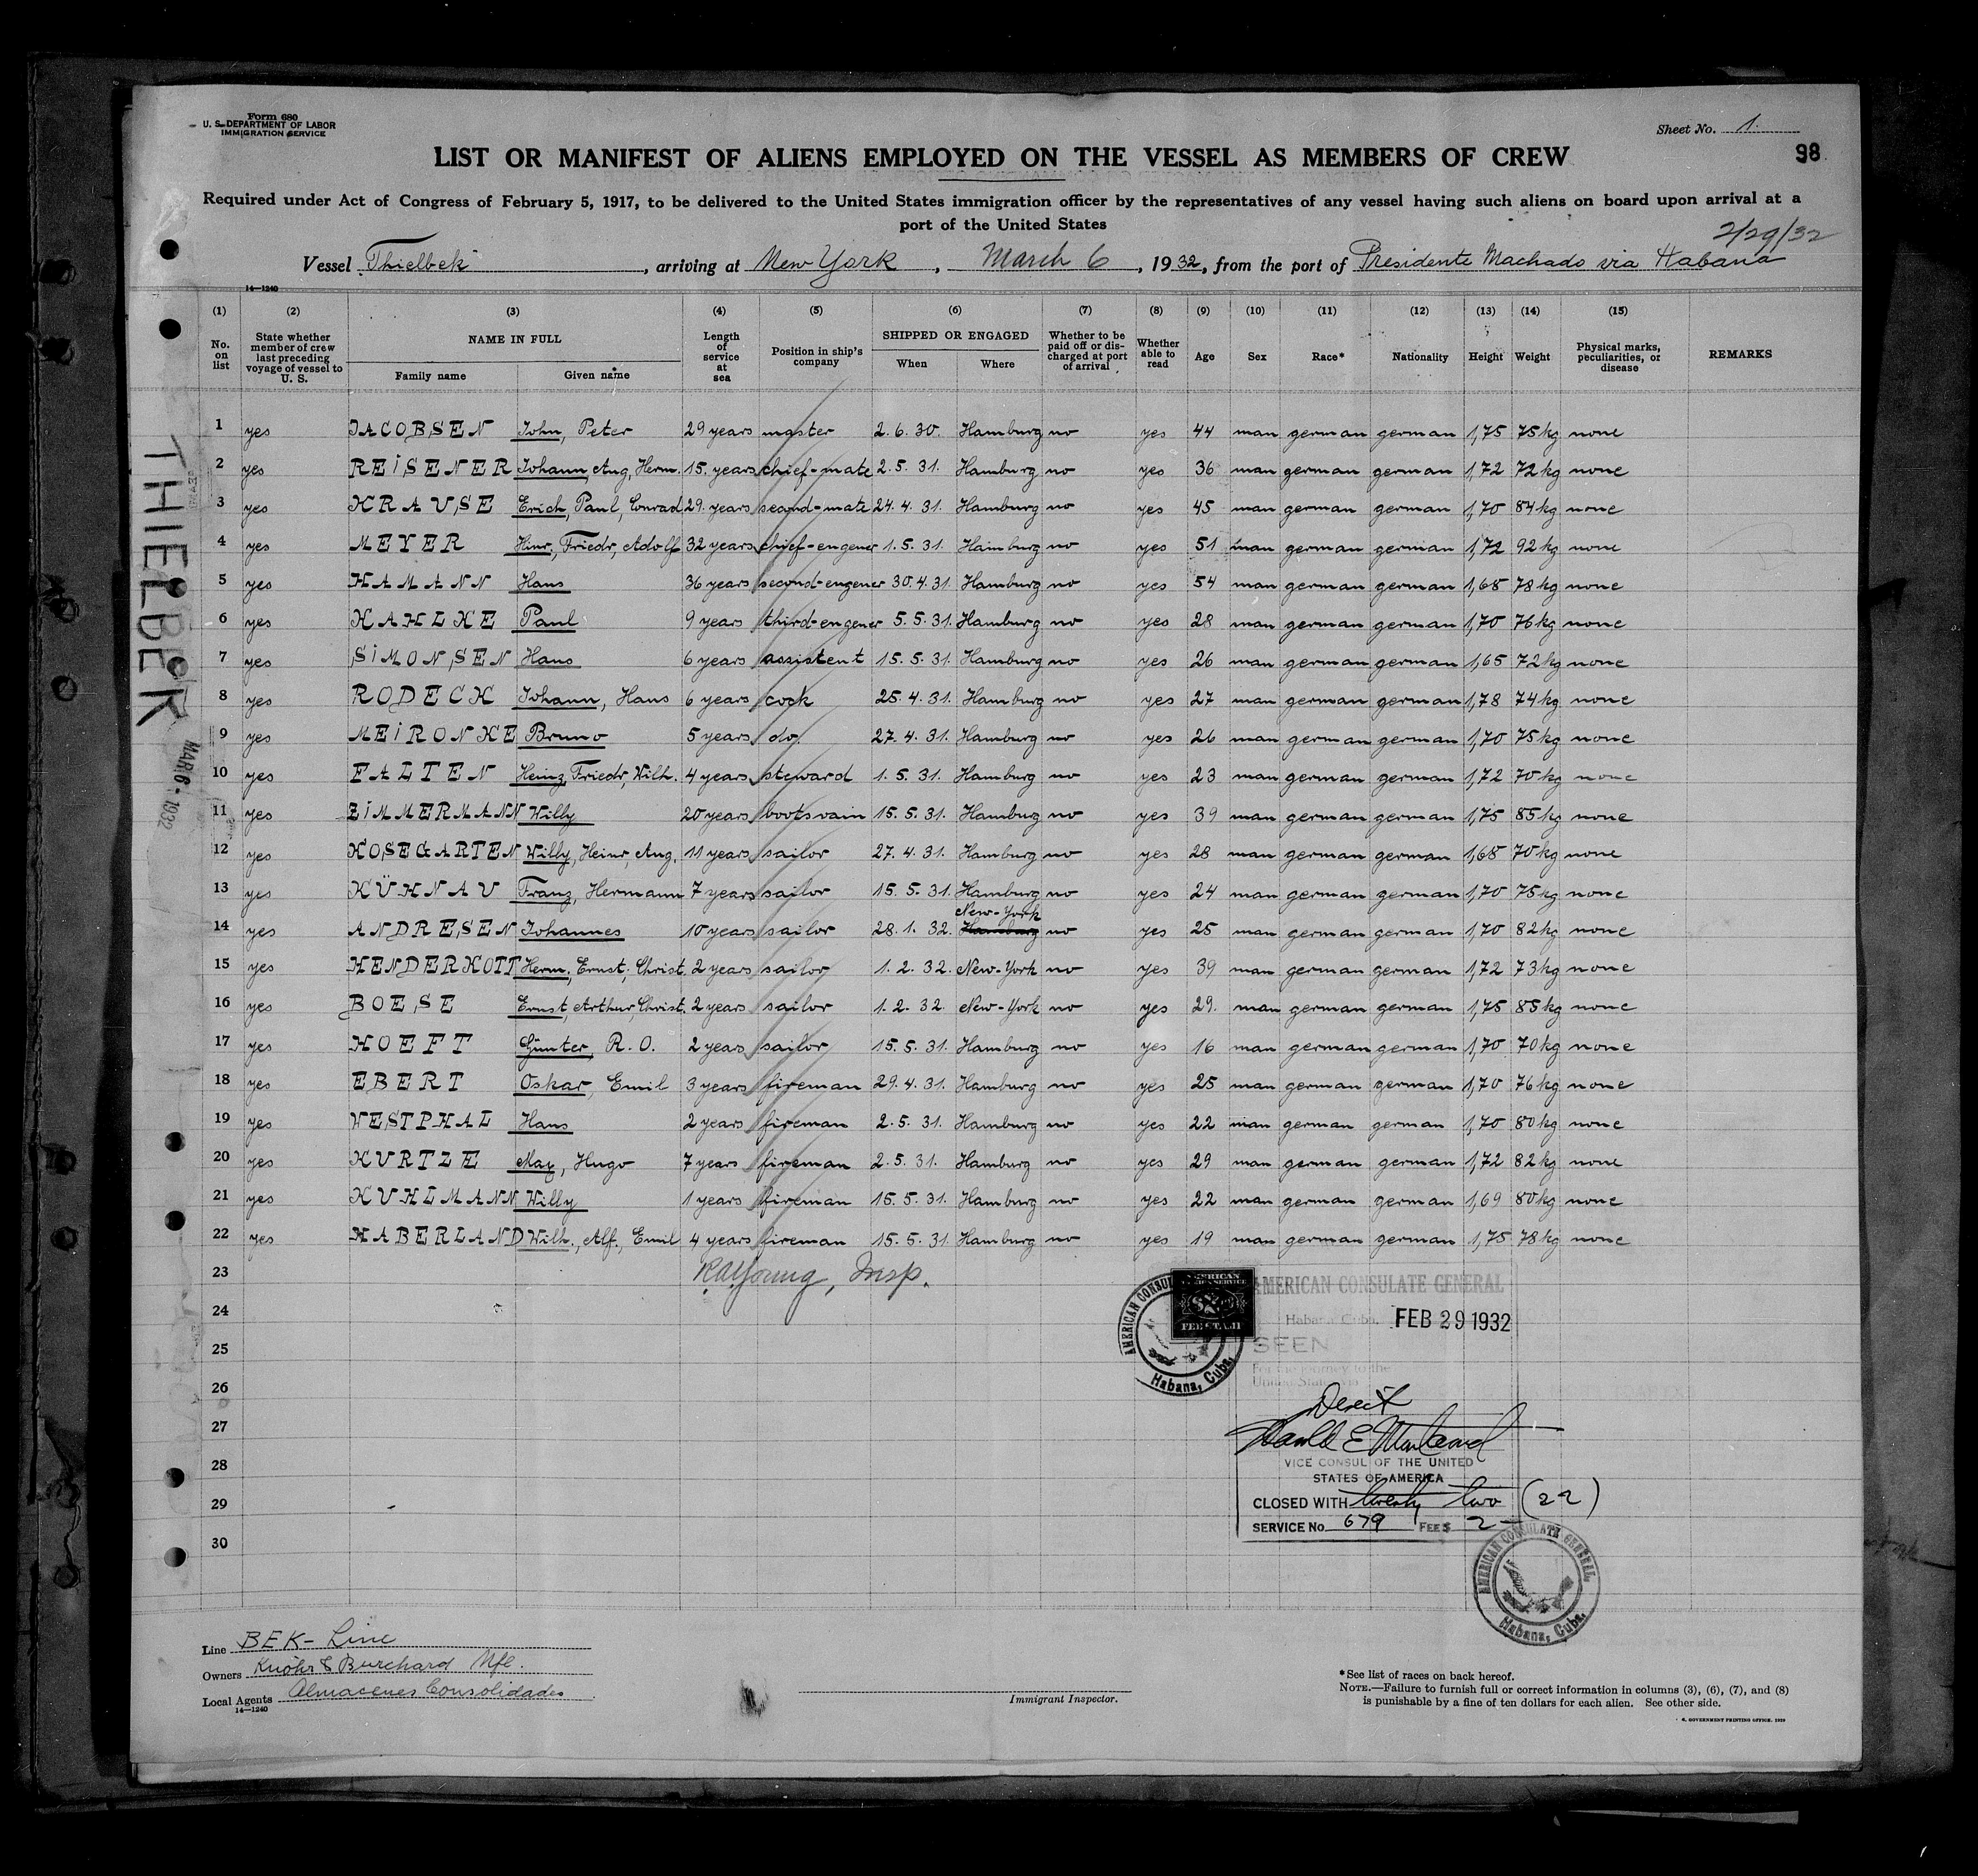 Form 680
U. S. DEPARTMENT OF LABOR
IMMIGRATION SERVICE
Sheet No. 1.
98
LIST OR MANIFEST OF ALIENS EMPLOYED ON THE VESSEL AS MEMBERS OF CREW
Required under Act of Congress of February 5, 1917, to be delivered to the United States immigration officer by the representatives of any vessel having such aliens on board upon arrival at a
port of the United States
2/29/32
Vessel Thielbek, arriving at New York, March 6, 1932, from the port of Presidente Machado via Habana
14—1240
(1) (2) (3) (4) (5) (6) (7) (8) (9) (10) (11) (12) (13) (14) (15)
No. on list State whether member of crew last preceding voyage of vessel to U. S. NAME IN FULL Family name Given name Length of service at sea Position in ship's company SHIPPED OR ENGAGED When Where Whether to be paid off or discharged at port of arrival Whether able to read Age Sex Race* Nationality Height Weight Physical marks, peculiarities, or disease REMARKS
1 yes JACOBSEN John, Peter 29 years master 2.6.30. Hamburg no yes 44 man german german 1,75 75kg none
2 yes REISENER Johann, Aug, Herm. 15. years chief-mate 2.5.31. Hamburg no yes 36 man german german 1,72 72kg none
3 yes KRAUSE Erich, Paul, Conrad 29. years second-mate 24.4.31. Hamburg no yes 45 man german german 1,70 84kg none
4 yes MEYER Hinr, Friedr, Adolf 32 years chief-engener 1.5.31. Hamburg no yes 51 man german german 1,72 92kg none
5 yes HAMANN Hans 36 years second-engener 30.4.31. Hamburg no yes 54 man german german 1,68 78kg none
6 yes KAHLKE Paul 9 years third-engener 5.5.31. Hamburg no yes 28 man german german 1,70 76kg none
7 yes SIMONSEN Hans 6 years assistent 15.5.31. Hamburg no yes 26 man german german 1,65 72kg none
8 yes RODECK Johann, Hans 6 years cock 25.4.31. Hamburg no yes 27 man german german 1,78 74kg none
9 yes MEIRONKE Bruno 5 years do. 27.4.31. Hamburg no yes 26 man german german 1,70 75kg none
10 yes FALTEN Heinz, Friedr, Wilh. 4 years steward 1.5.31. Hamburg no yes 23 man german german 1,72 70kg none
11 yes ZIMMERMANN Willy 20 years bootsvain 15.5.31. Hamburg no yes 39 man german german 1,75 85kg none
12 yes KOSEGARTEN Willy, Heinr, Aug. 11 years sailor 27.4.31. Hamburg no yes 28 man german german 1,68 70kg none
13 yes KÜHNAU Franz, Hermann 7 years sailor 15.5.31. Hamburg no yes 24 man german german 1,70 75kg none
14 yes ANDRESEN Johannes 10 years sailor 28.1.32. New-York Hamburg no yes 25 man german german 1,70 82kg none
15 yes HENDERKOTT Herm, Ernst, Christ. 2 years sailor 1.2.32. New-York no yes 39 man german german 1,72 73kg none
16 yes BOESE Ernst, Arthur, Christ. 2 years sailor 1.2.32. New-York no yes 29. man german german 1,75 85kg none
17 yes HOEFT Günter, R. O. 2 years sailor 15.5.31. Hamburg no yes 16 man german german 1,70 70kg none
18 yes EBERT Oskar, Emil 3 years fireman 29.4.31. Hamburg no yes 25 man german german 1,70 76kg none
19 yes WESTPHAL Hans 2 years fireman 2.5.31. Hamburg no yes 22 man german german 1,70 80kg none
20 yes KURTZE Max, Hugo 7 years fireman 2.5.31. Hamburg no yes 29 man german german 1,72 82kg none
21 yes KUHLMANN Willy 1 years fireman 15.5.31. Hamburg no yes 22 man german german 1,69 80kg none
22 yes HABERLAND Wilh., Alf., Emil 4 years fireman 15.5.31. Hamburg no yes 19 man german german 1,75 78kg none
23 R A Young, Insp.
24
25
26
27
28
29
30
THIELBEK
MAR. 6 - 1932
AMERICAN CONSULATE GENERAL
Habana, Cuba. FEB 29 1932
SEEN
For the journey to the
United States via
Direct
AMERICAN
FEE STAMP
AMERICAN CONSUL
Habana, Cuba.
VICE CONSUL OF THE UNITED
STATES OF AMERICA
CLOSED WITH twenty two (22)
SERVICE No. 679 FEE $ 2-
AMERICAN CONSULATE GENERAL,
Habana, Cuba.
Line BEK-Line
Owners Knöhr & Burchard Nfl.
Local Agents Almacenes Consolidades
14—1240
Immigrant Inspector.
*See list of races on back hereof.
NOTE.—Failure to furnish full or correct information in columns (3), (6), (7), and (8)
is punishable by a fine of ten dollars for each alien. See other side.
GOVERNMENT PRINTING OFFICE: 1929